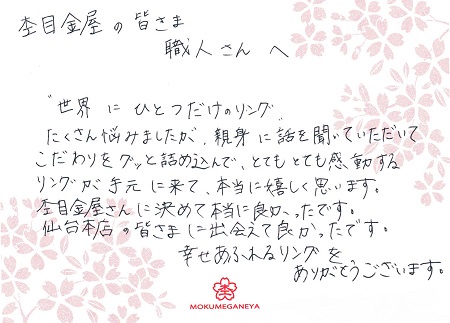 杢目金屋 の 皆さま
職人さん へ
"世界 に ひとつだけのリング"
たくさん悩みましたが、親身 に 話を聞いていただいて
こだわりをグッと詰め込んで、とても とても感動する
リング が 手元 に 来て、本当に嬉しく思います。
杢目金屋さんに決めて本当に良かったです。
仙台本店 の 皆さま に 出会えて良かったです。
幸せあふれるリング を
ありがとうございます。
MOKUMEGANEYA